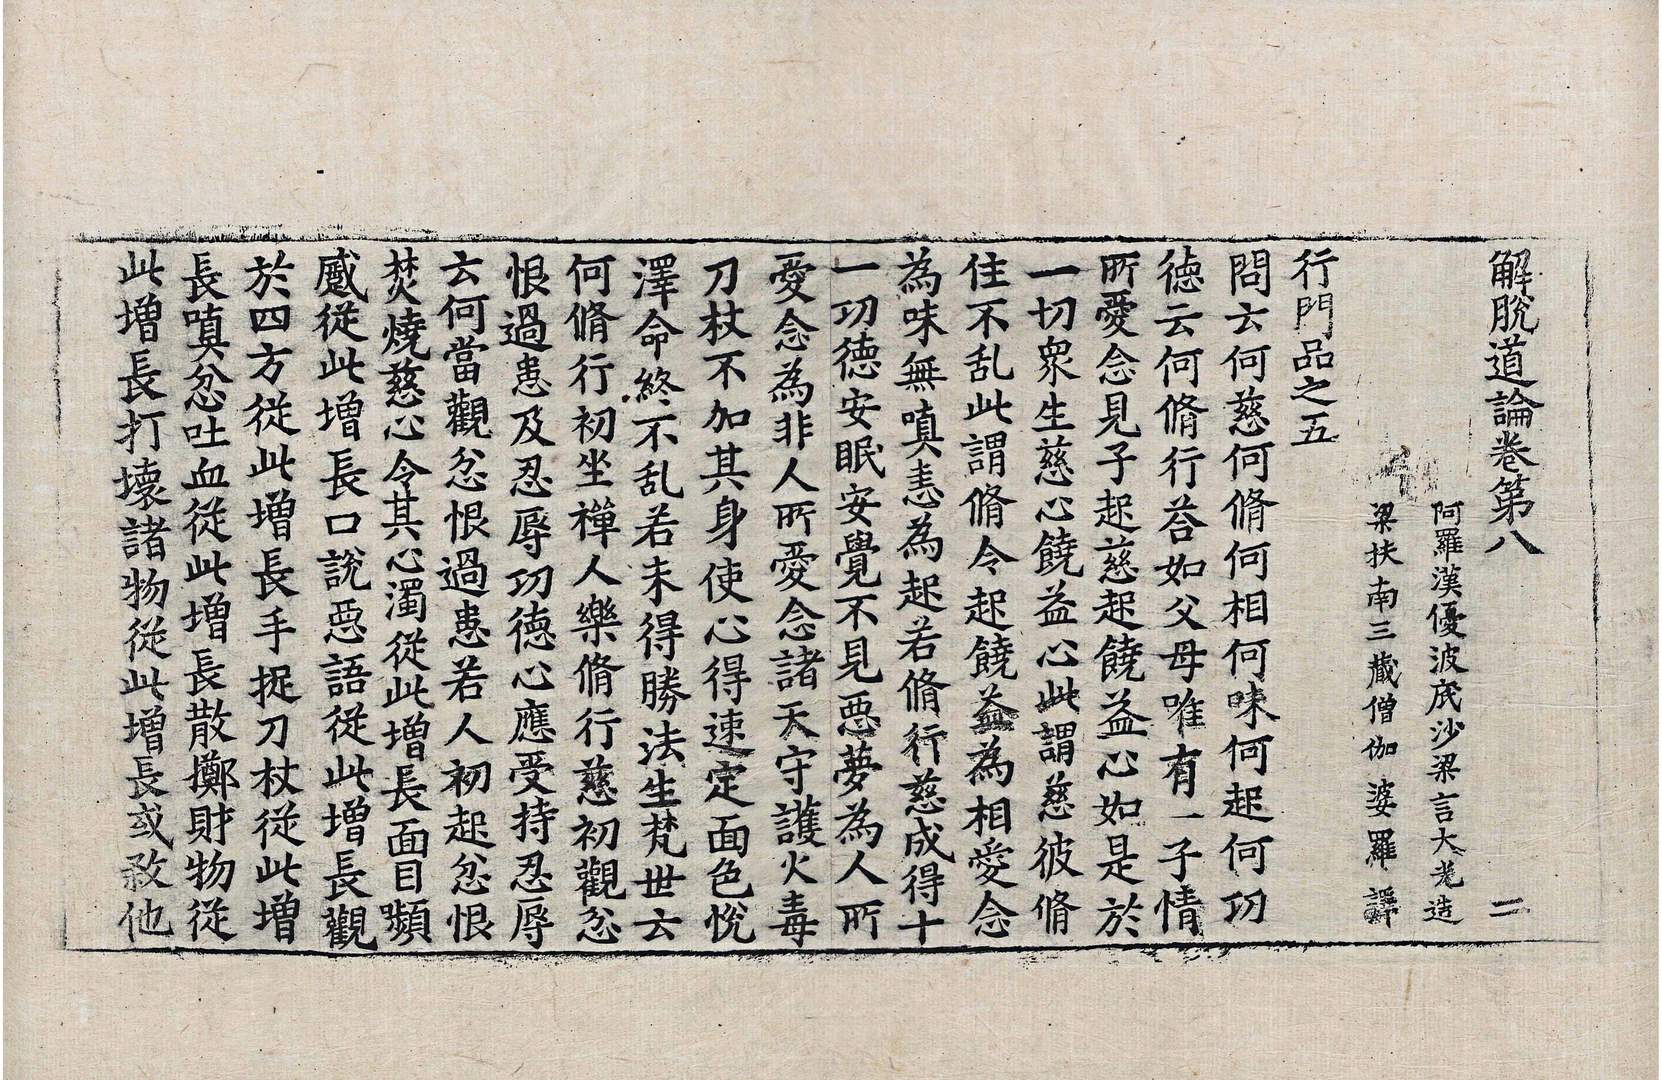 解脫道論卷第八 二
阿羅漢優波底沙梁言大光造
梁扶南三藏僧伽婆羅譯
行門品之五
問云何慈何脩何相何味何起何功
德云何脩行荅如父母唯有一子情
所愛念見子起慈起饒益心如是於
一切衆生慈心饒益心此謂慈彼脩
住不乱此謂脩令起饒益為相愛念
為味無嗔恚為起若脩行慈成得十
一功德安眠安覺不見惡夢為人所
愛念為非人所愛念諸天守護火毒
刀杖不加其身使心得速定面色悅
澤命終不乱若未得勝法生梵世云
何脩行初坐禪人樂脩行慈初觀忿
恨過患及忍辱功德心應受持忍辱
云何當觀忿恨過患若人初起忿恨
焚燒慈心令其心濁從此增長面目嚬
蹙從此增長口說惡語從此增長觀
於四方從此增長手捉刀杖從此增
長嗔忿吐血從此增長散擲財物從
此增長打壞諸物從此增長或煞他